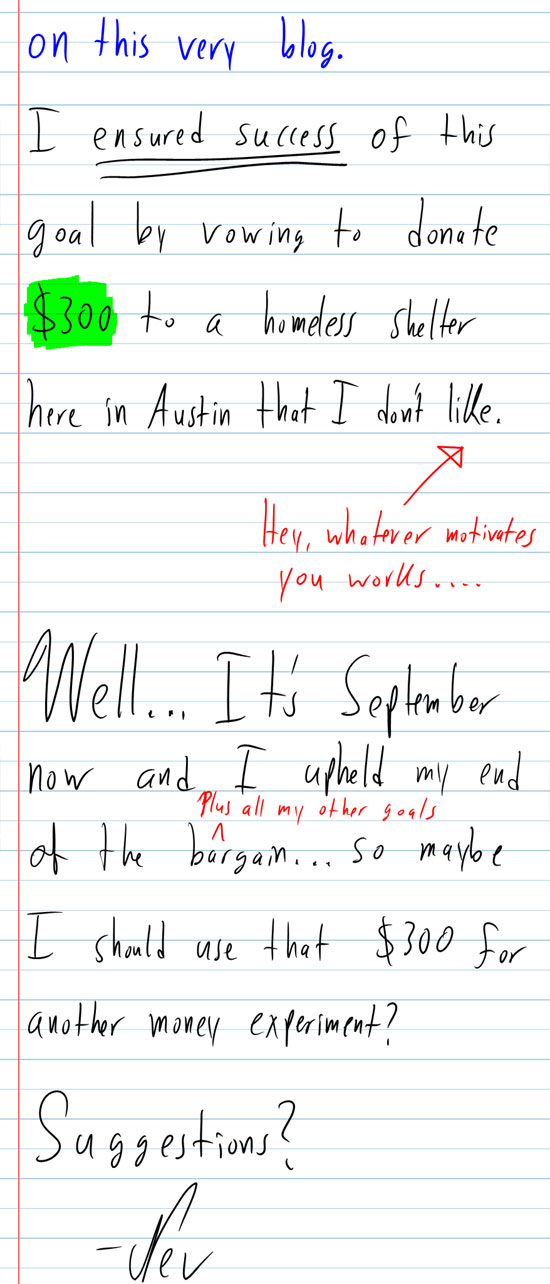 on this very blog.
I ensured success of this
goal by vowing to donate
$300 to a homeless shelter
here in Austin that I don't like.
Hey, whatever motivates
you works....
Well... It's September
now and I upheld my end
Plus all my other goals
of the bargain... so maybe
I should use that $300 for
another money experiment?
Suggestions?
-Nev